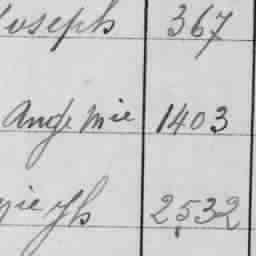 Joseph 367
Ange Mie 1403
gie Jh 2532